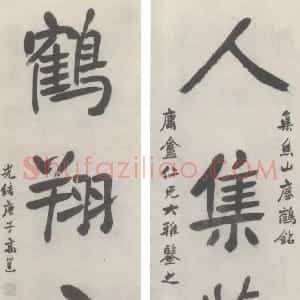 集焦山瘞鶴銘
人集
庸盦仁兄大雅鑒之
鶴翔
光緒庚子高邕
Shufaziliao.com